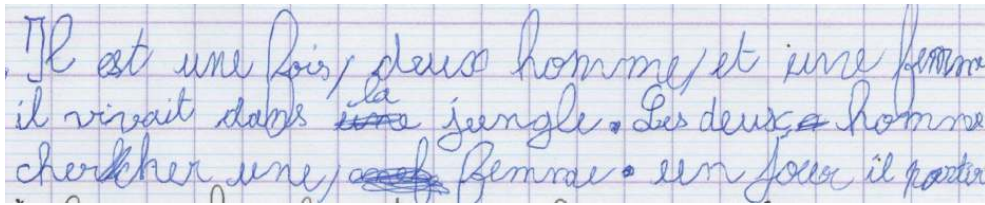 Il est une fois, deux homme, et une femme
il vivait dans la jungle. Les deux homme
chercher une, femme. un jour il partir